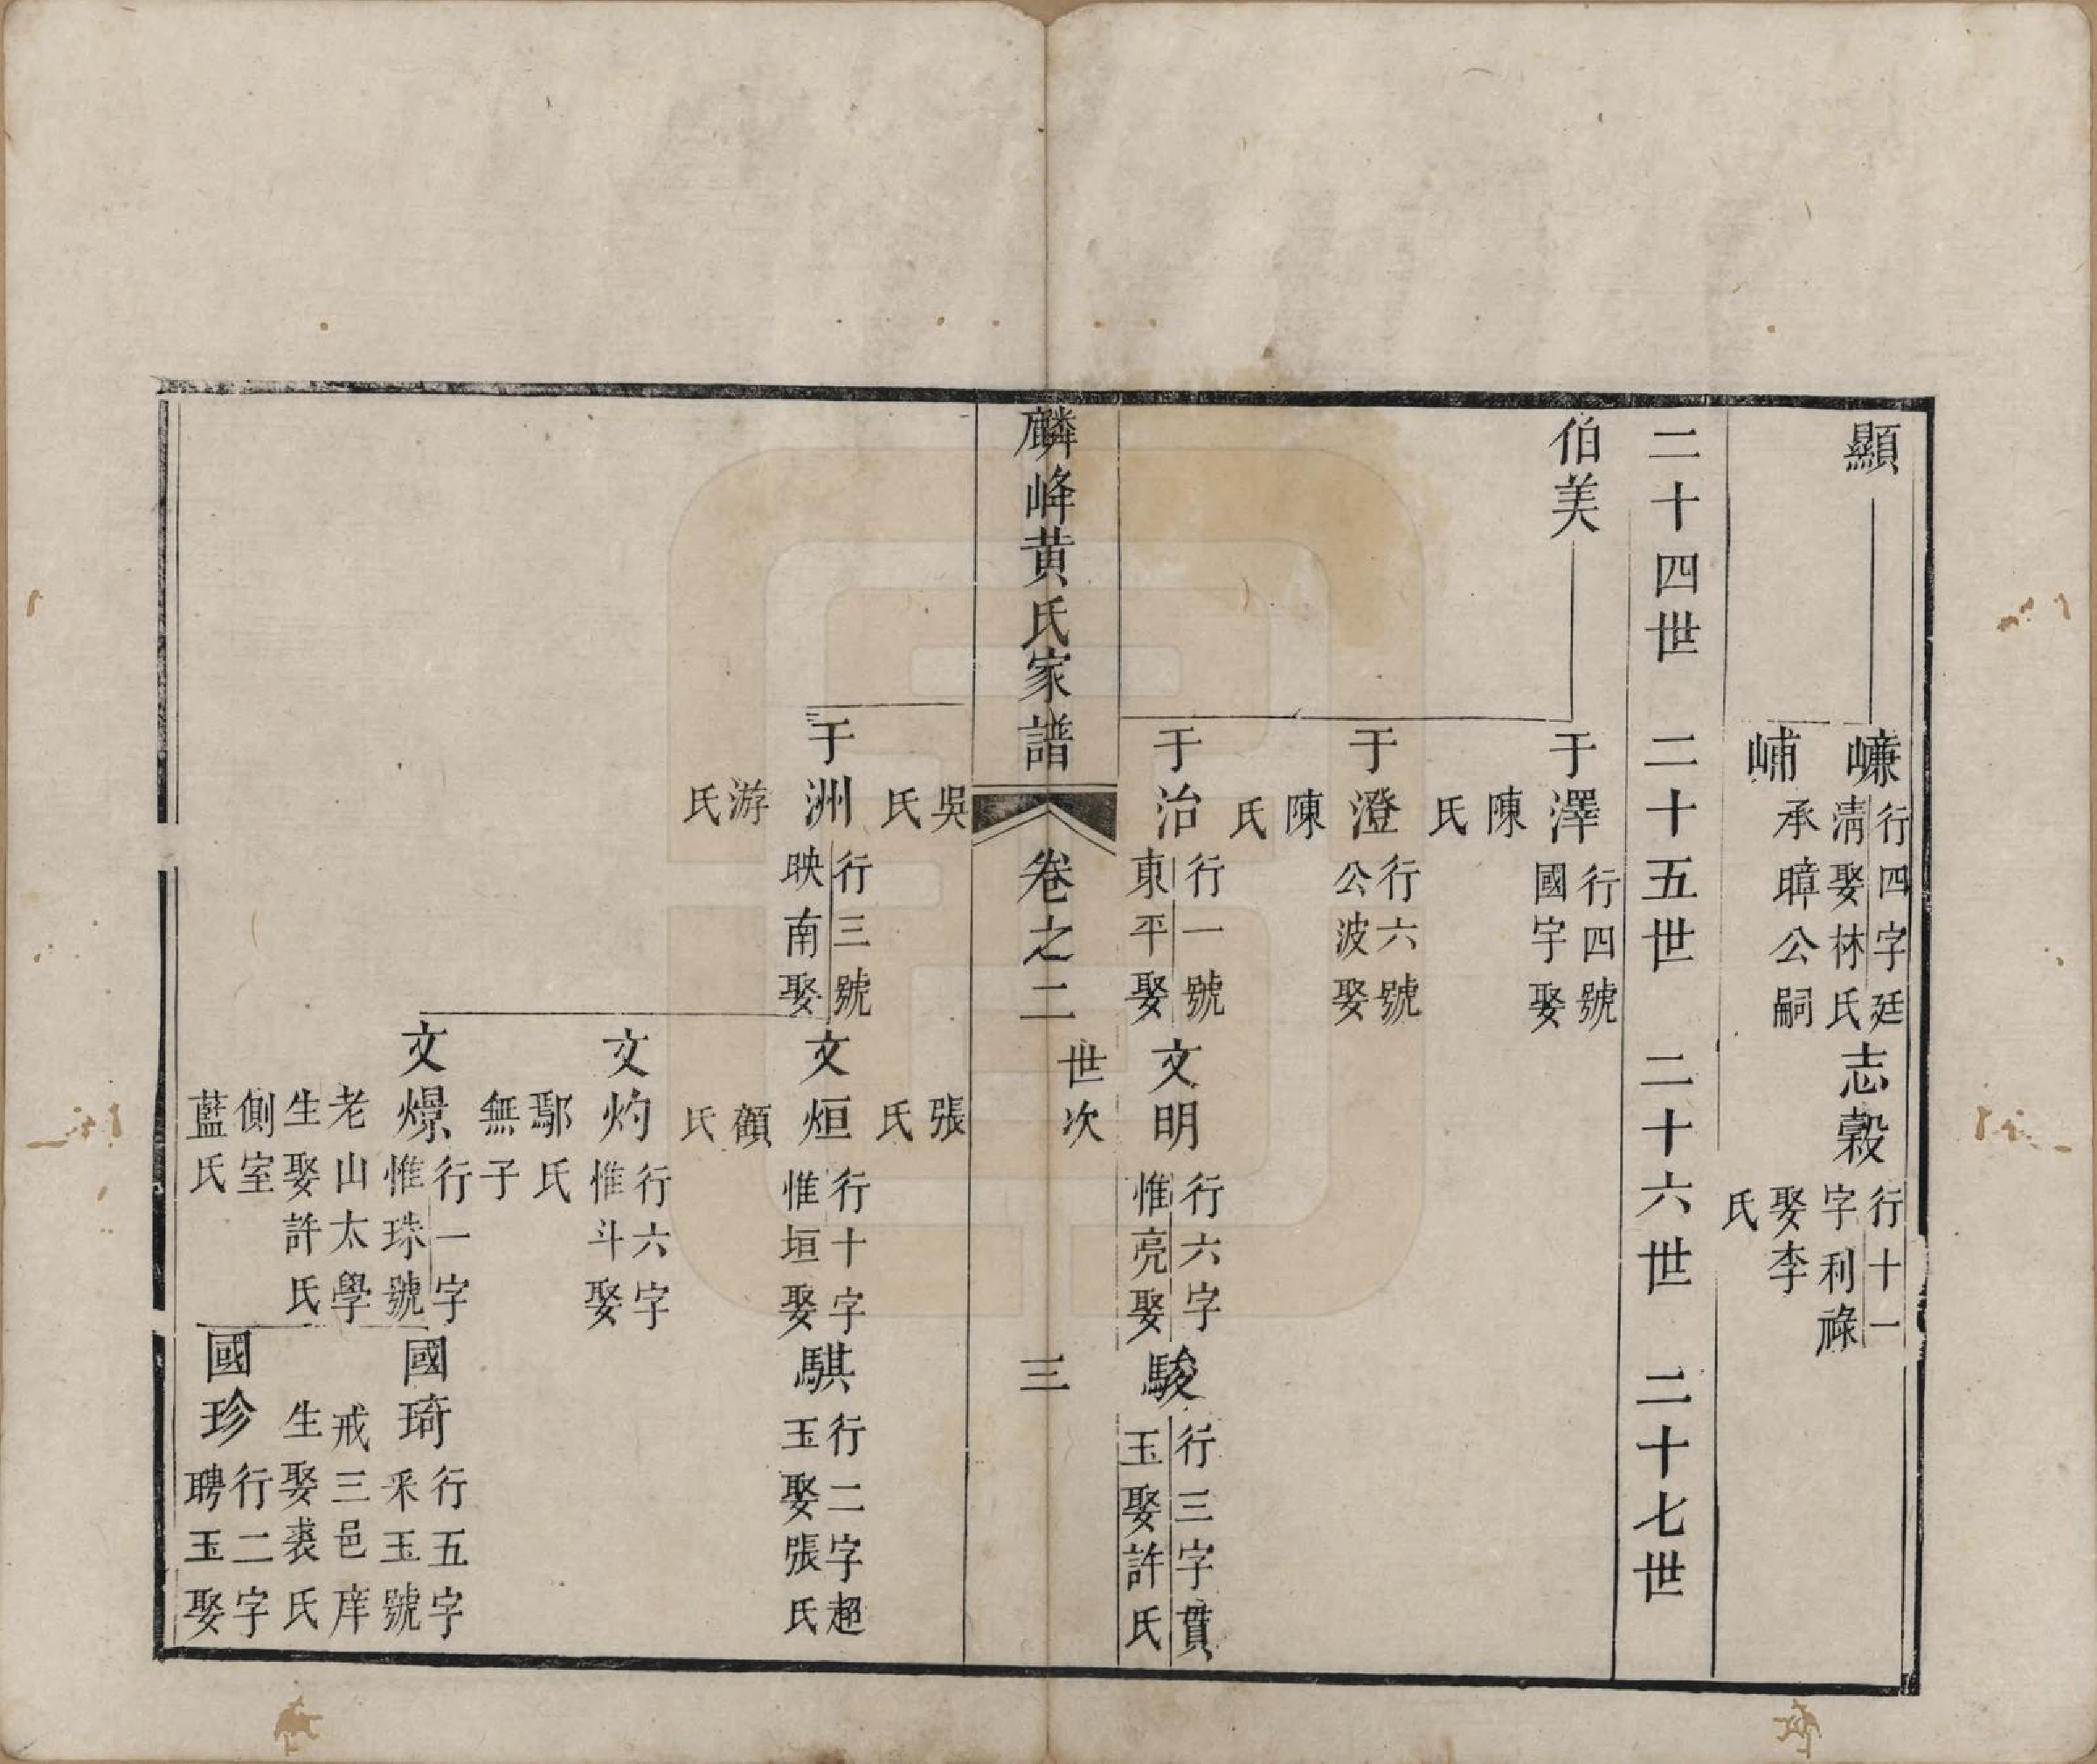 顯
㠗行四字廷
淸娶林氏
志榖行十一
字利祿
娶李
氏
峬
承暲公嗣
二十四世　二十五世　二十六世　二十七世
伯美
于澤行四號
國宇娶
陳
氏
于澄行六號
公波娶
陳
氏
于治行一號
東平娶
文明行六字
惟亮娶
駿行三字貫
玉娶許氏
麟峰黄氏家譜　卷之二　世次　三
吳
氏
張
氏
于洲行三號
映南娶
文烜行十字
惟垣娶
騏行二字超
玉娶張氏
游
氏
顔
氏
文灼行六字
惟斗娶
鄢氏
無子
文燝行一字
惟珠號
老山太學
生娶許氏
側室
藍氏
國琦行五字
釆玉號
戒三邑庠
生娶裘氏
國珍行二字
聘玉娶